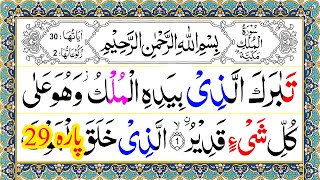 اٰيَاتُهَا: 30
رُكُوْعَاتُهَا: 2
بِسْمِ اللّٰهِ الرَّحْمٰنِ الرَّحِيْمِ
سُوْرَةُ
الْمُلْكِ
مَكِّيَّةٌ
تَبٰرَكَ الَّذِىْ بِيَدِهِ الْمُلْكُ وَهُوَ عَلٰى
كُلِّ شَىْءٍ قَدِيْرُ ۙ ﴿١﴾ الَّذِىْ خَلَقَ
پاره 29